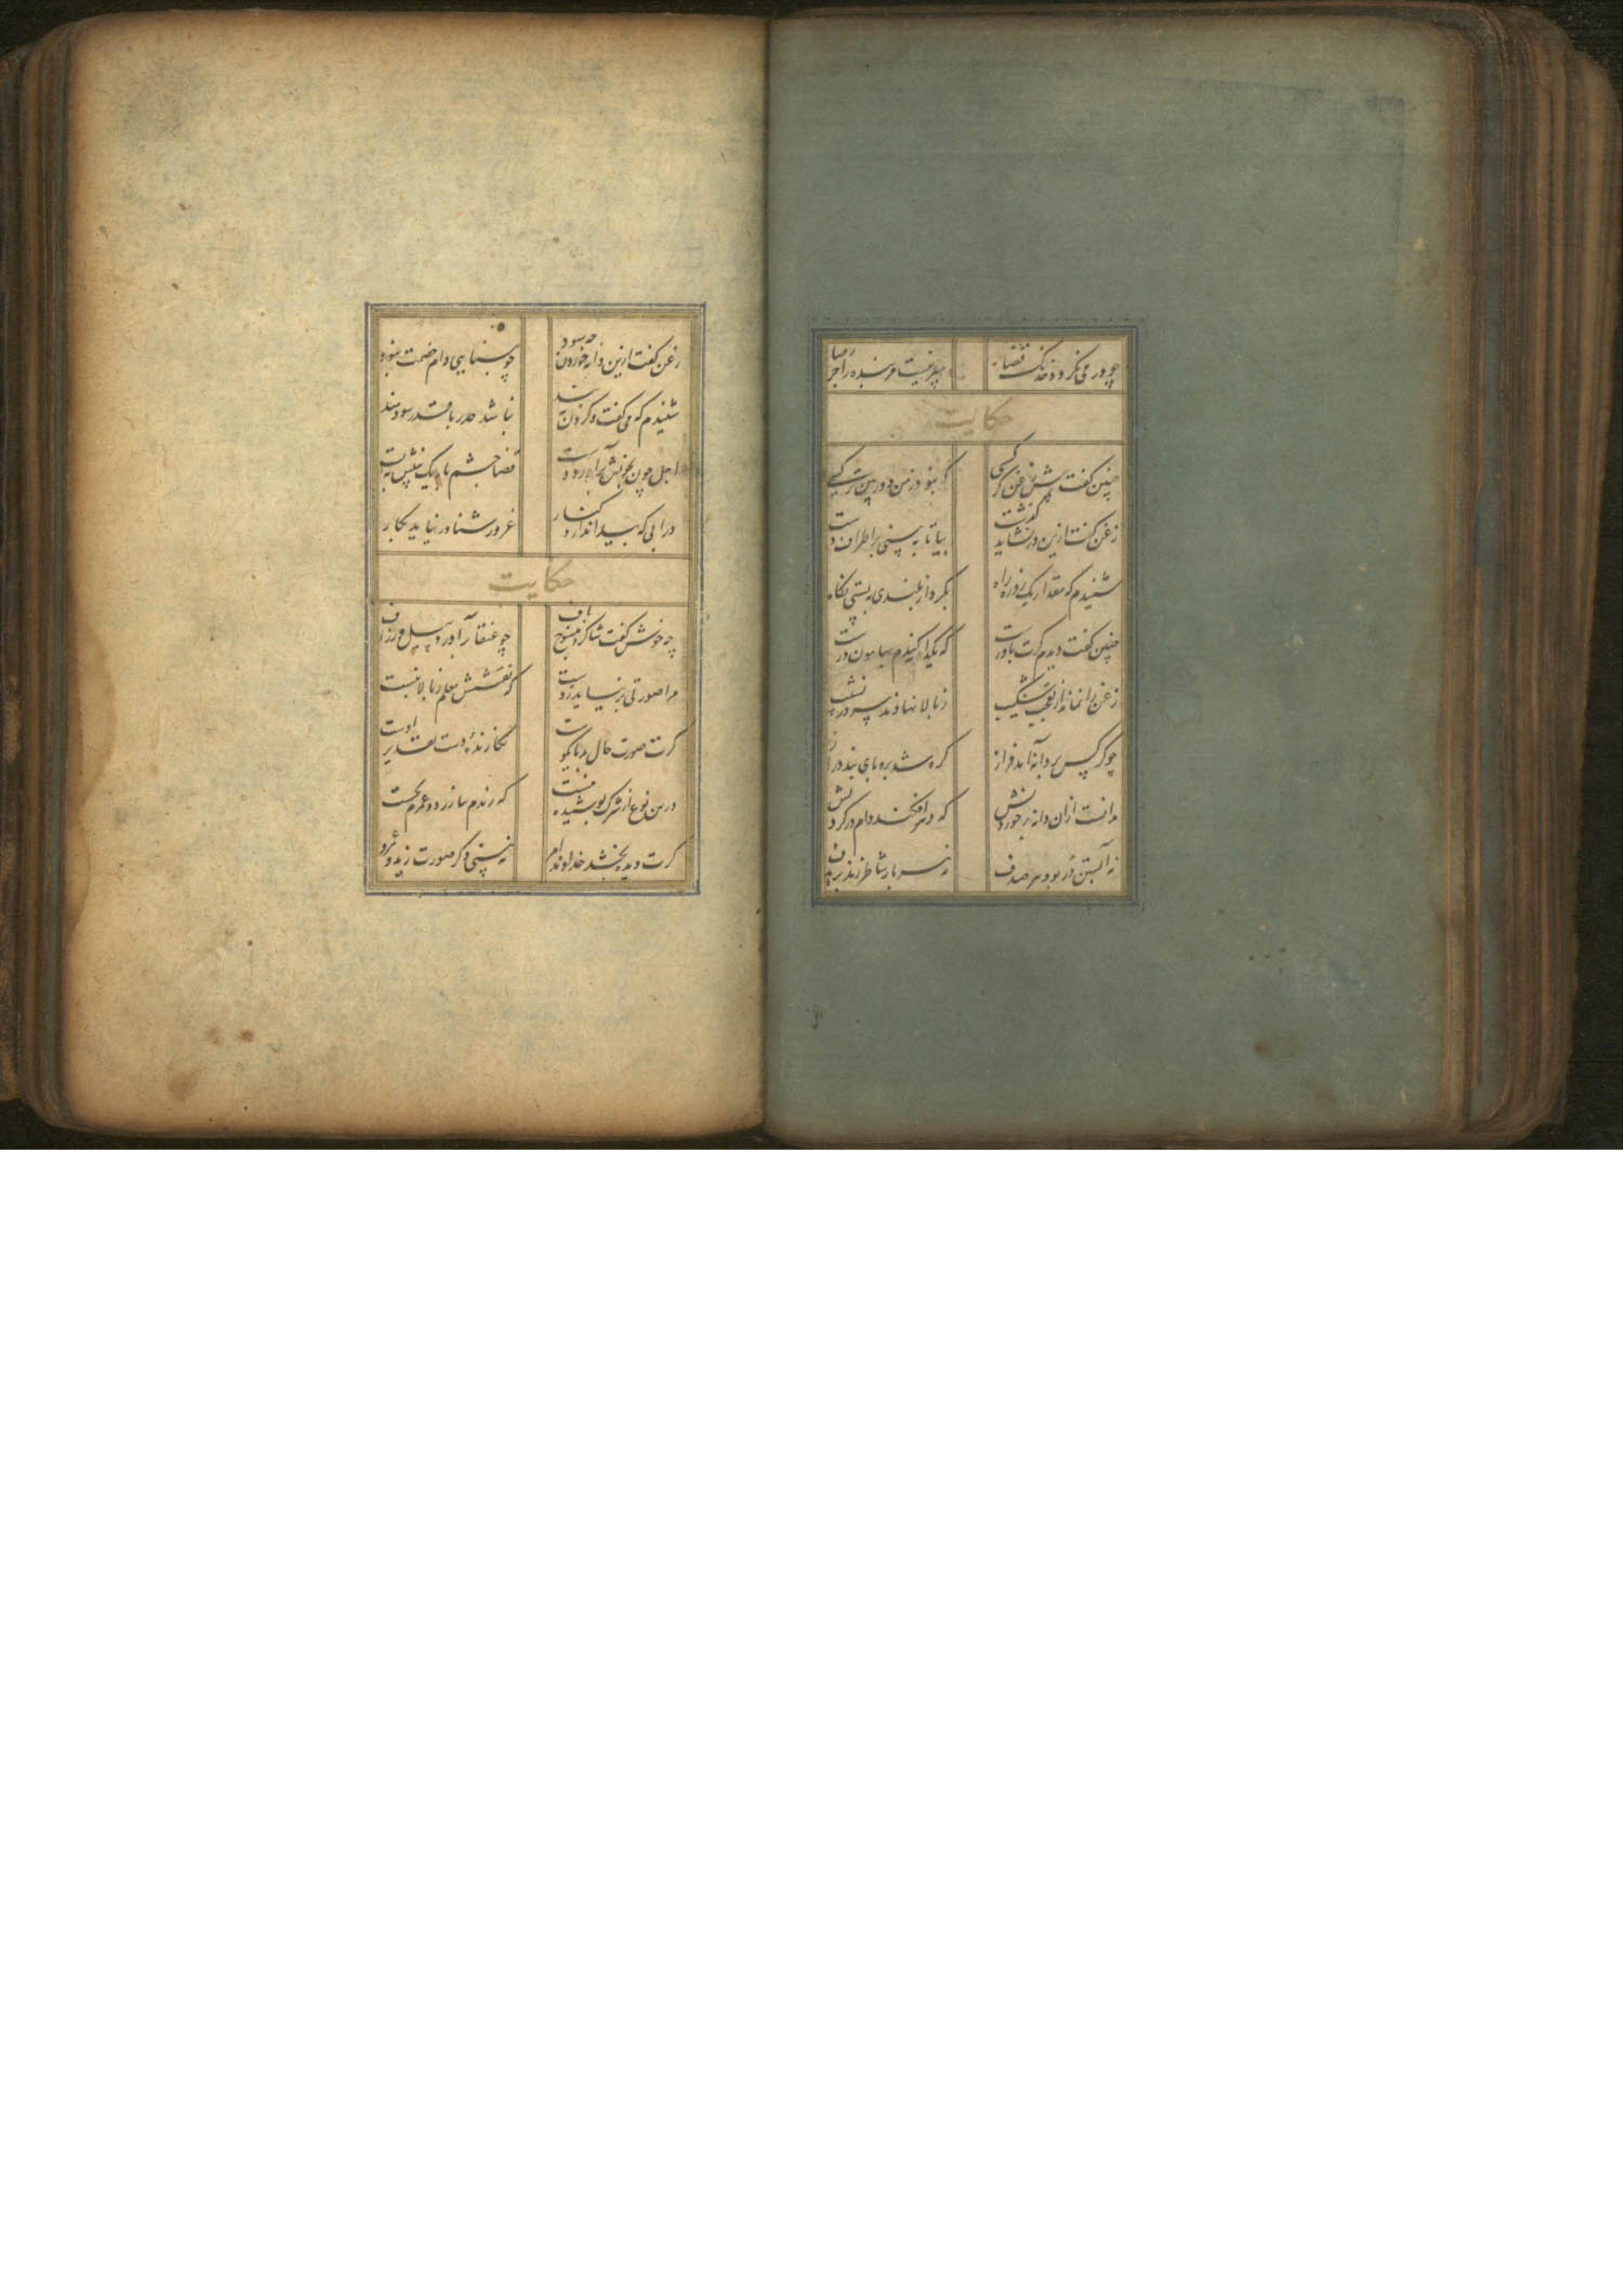 چو در می نکردد خدنک قضا سپر نیست مر بنده را جز رضا
حکایت
چنین کفت پیش زغن کرکسی که نبود ز من دوربین تر کسی
زغن کفت ازین در نشاید کذشت بیا تا چه بینی بر اطراف دشت
شنیدم که مقدار یک روزه راه بکرد از بلندی به پستی نکاه
چنین کفت دیدم کرت باورست که یکدانه کندم بهامون درست
زغن را نماند از تعجب شکیب ز بالا نهادند سر در نشیب
چو کرکس بر دانه آمد فراز کره شد برو پای بندی دراز
ندانست ازان دانه بر خوردنش که دهر افکند دام در کردنش
نه آبستن در بود هر صدف نه هر بار شاطر زند بر هدف
زغن کفت ازین دانه خوردن چه سود چو بینایی دام خصمت نبود
شنیدم که می کفت و کردن ببند نباشد حذر با قدر سودمند
اجل چون بخونش برآورد دست قضا چشم باریک بینش ببست
در ابی که پیدا ندارد کنار غرور شناور نیاید بکار
حکایت
چه خوش کفت شاکرد منسوج باف چو عنقا برآورد و پیل و زراف
مرا صورتی بر نیاید ز دست که نقشش معلم ز بالا نبست
کرت صورت حال بد یا نکوست نکارنده دست تقدیر اوست
درین نوع از شرک پوشیده هست که زیدم بیازرد و عمرم بخست
کرت دیده بخشد خداوند امر نه بینی دکر صورت زید و عمرو